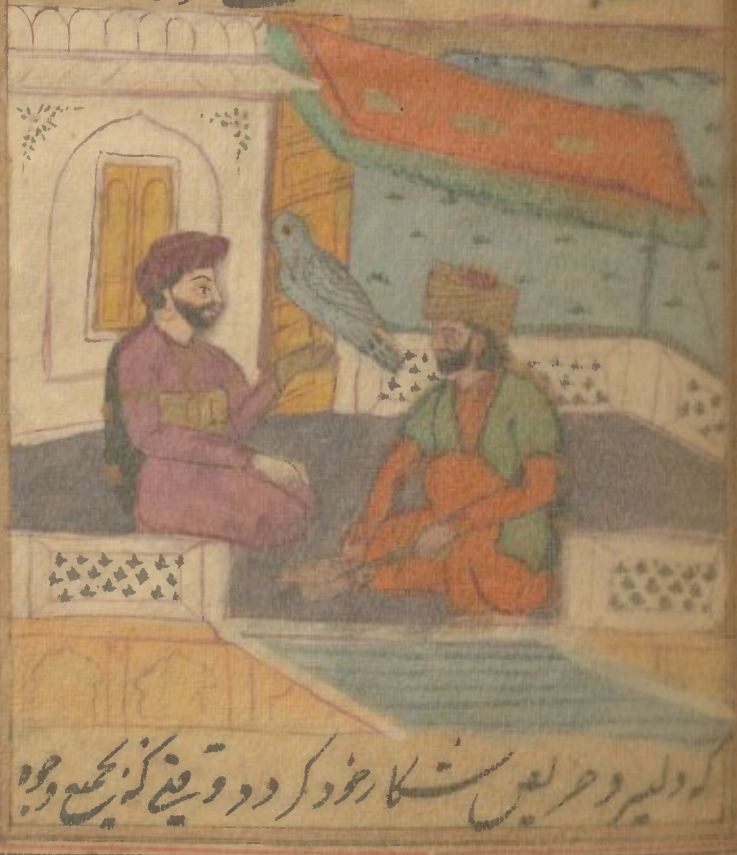 که دلیر و حریص شکار خود کردد و وقتی که بجمیع وجوه